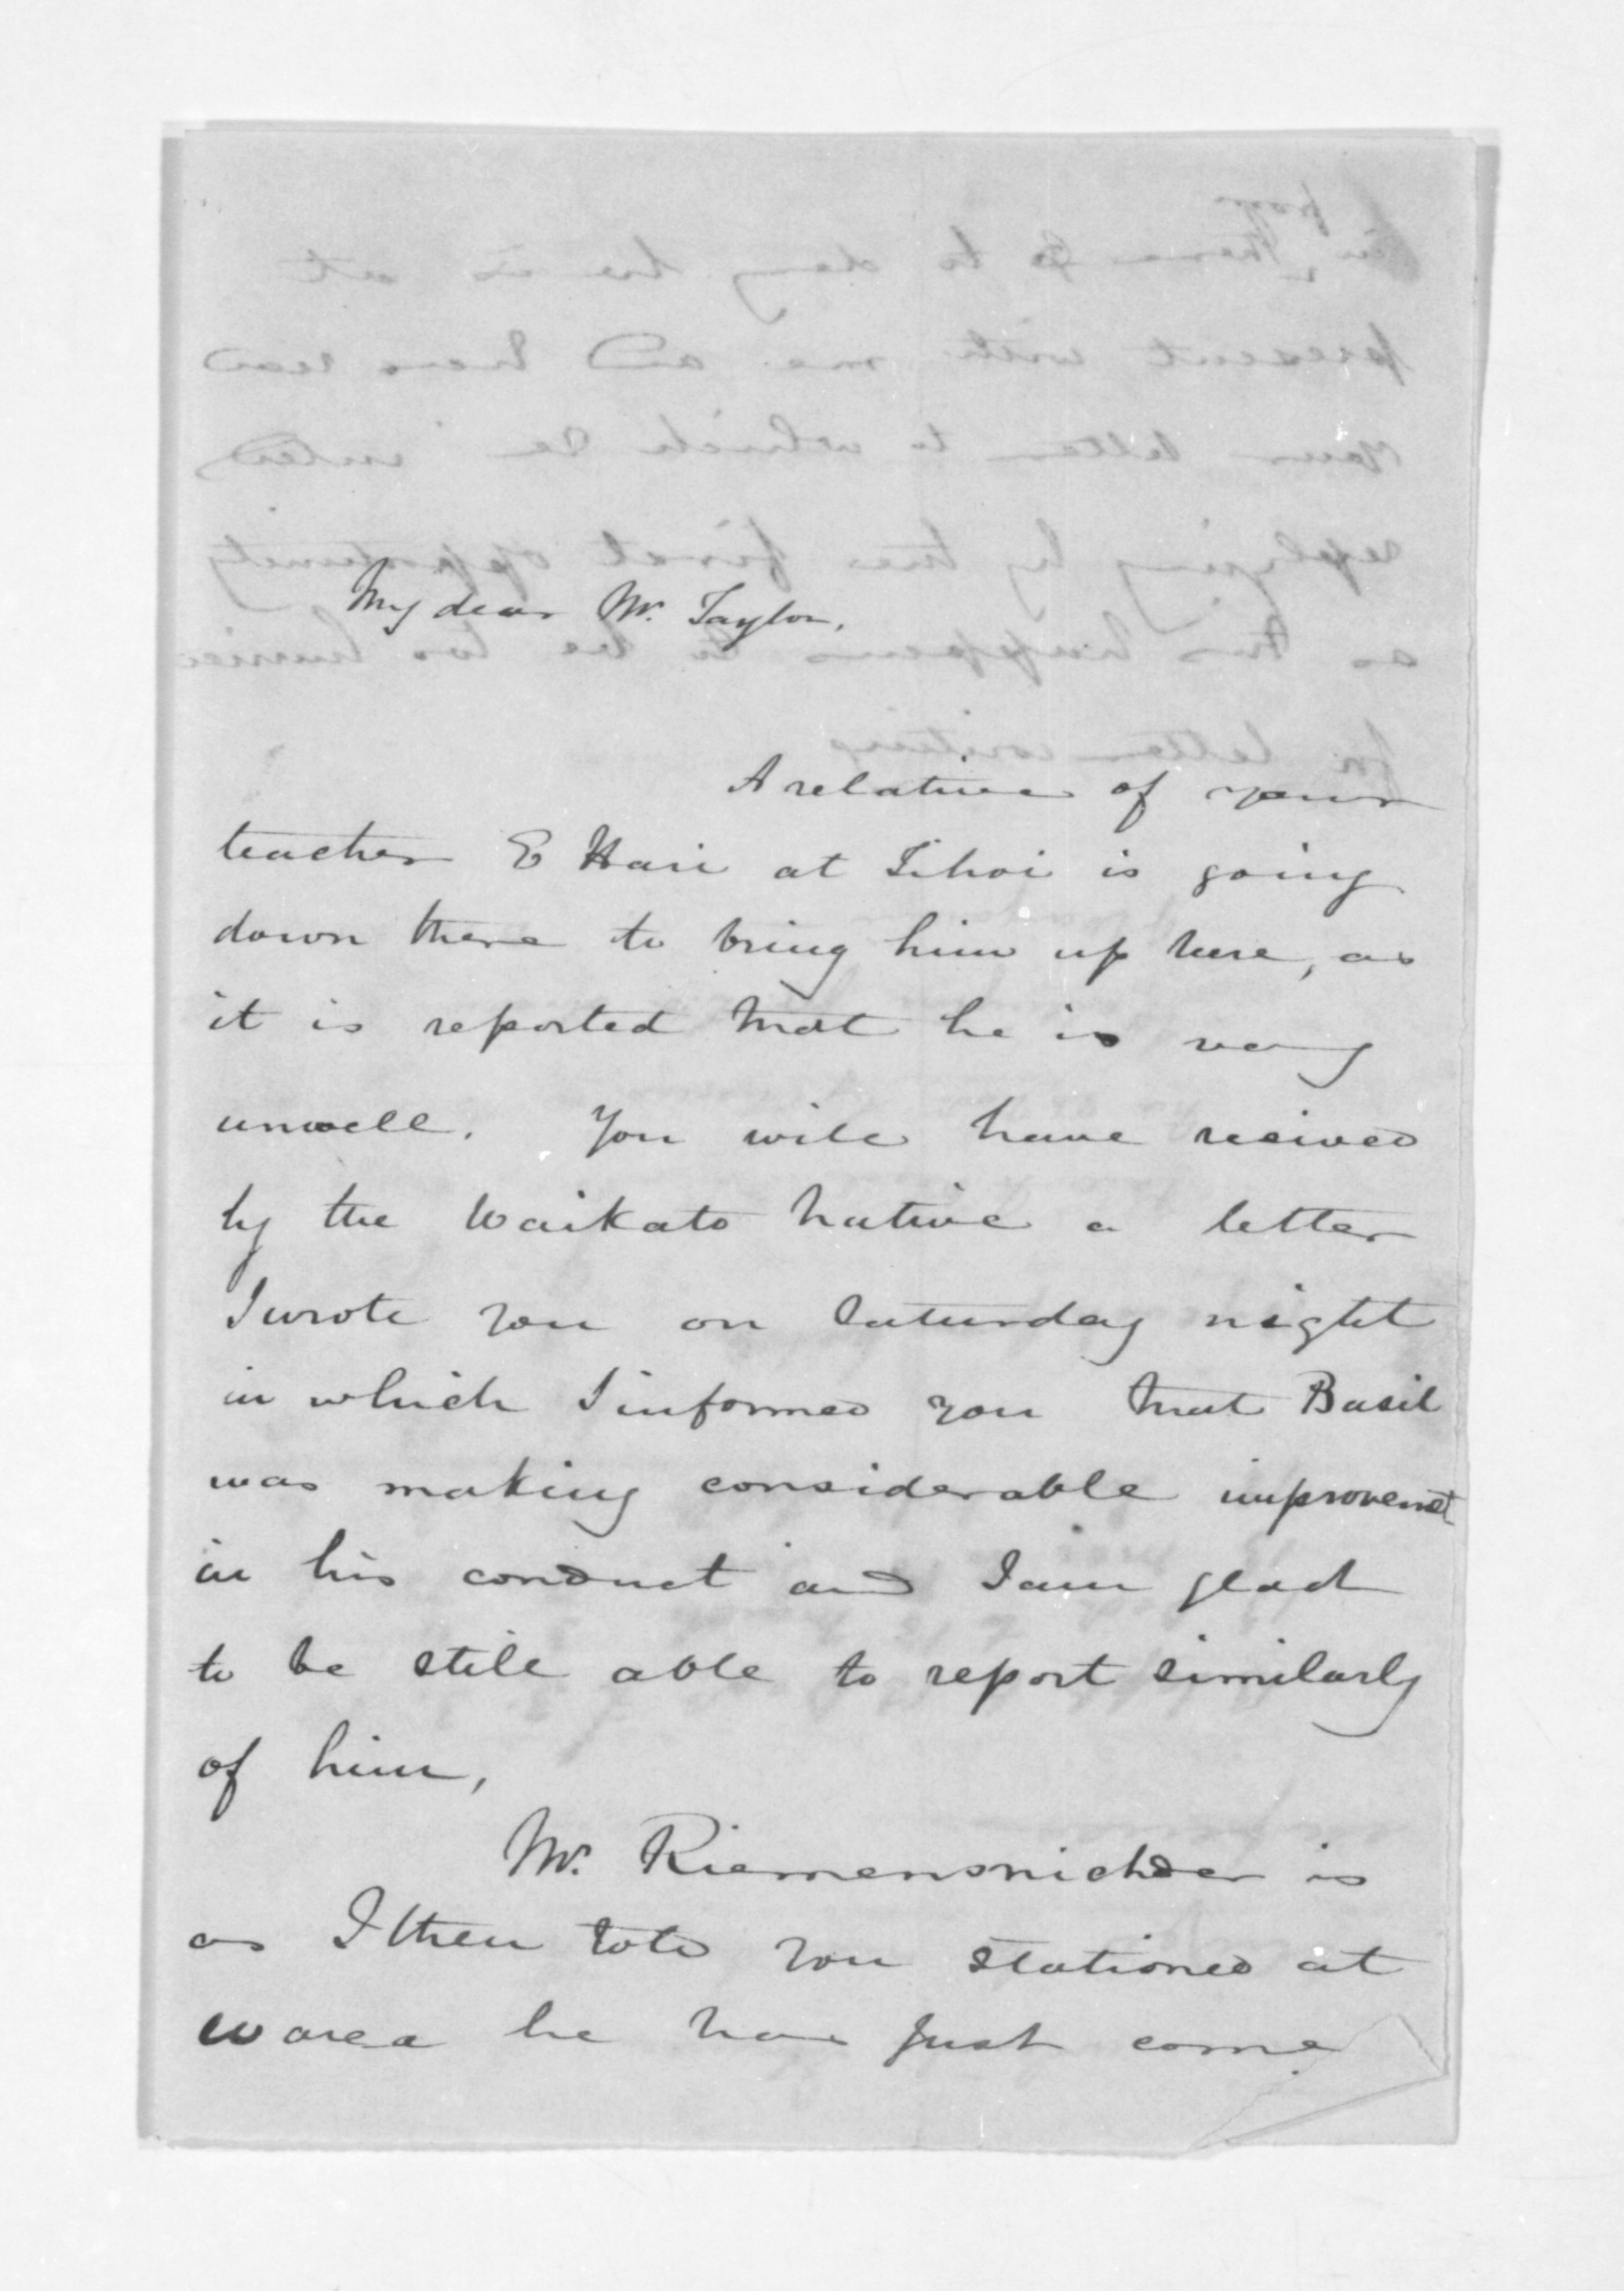 My dear Mr. Taylor,
A relative of your
teacher E Hari at Tihoi is going
down there to bring him up here, as
it is reported that he is very
unwell. You will have reeived
by the Waikato Native a letter
I wrote you on Saturday night
in which I informed you that Basil
was making considerable improvemet
in his conduct and I am glad
to be still able to report similarly
of him,
Mr. Riemensnichder is
as I then told you stationed at
Warea he has just come